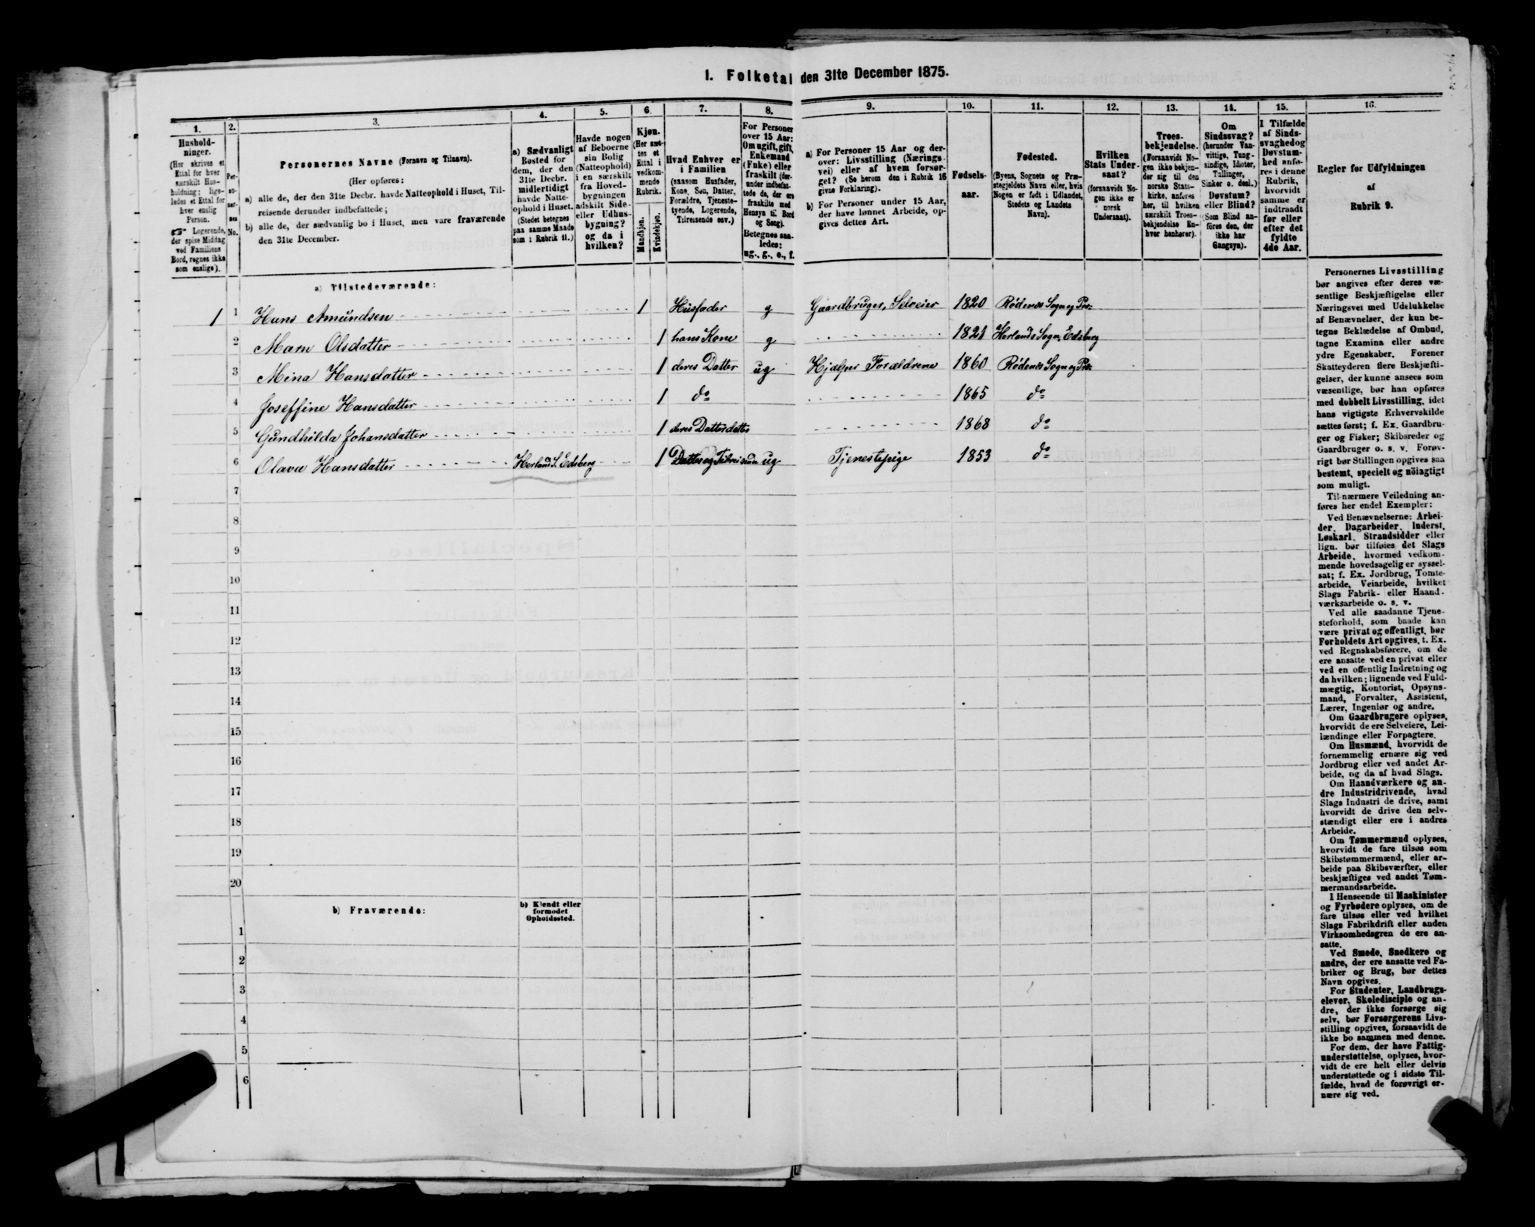 I. Folketal den 31te December 1875.
1.
2.
3.
4.
5.
6.
7.
8.
9.
10.
11.
12.
13.
14.
15.
16.
Hushold-
ninger.
(Her skrives et
Ettal for hver
særskilt Hus-
holdning; lige-
ledes et Ettal for
hver enslig
Person.
☞ Logerende,
der spise Middag
ved Familiens
Bord, regnes ikke
som enslige).
Per-
so-
ner-
nes
No.
Personernes Navne (Fornavn og Tilnavn).
(Her opføres:
a) alle de, der den 31te Decbr. havde Natteophold i Huset, Til-
reisende derunder indbefattede;
b) alle de, der sædvanlig bo i Huset, men vare fraværende
den 31te December.
a) Sædvanligt
Bosted for
dem, der den
31te Decbr.
midlertidigt
havde Natte-
ophold i Huset.
(Stedet betegnes
paa samme Maade
som i Rubrik 11.)
Havde nogen
af Beboerne
sin Bolig
(Natteophold)
i en særskilt
fra Hoved-
bygningen
adskilt Side-
eller Udhus-
bygning?
og da i
hvilken?
Kjøn.
(Her sæt-
tes et
Ettal i
vedkom-
mende
Rubrik.
Mandkjøn.
Kvindekjøn.
Hvad Enhver er
i Familien
(saasom Husfader,
Kone, Søn, Datter,
Forældre, Tjeneste-
tyende, Logerende,
Tilreisende osv.)
For Personer
over 15 Aar:
Om ugift, gift,
Enkemand
(Enke) eller
fraskilt (her-
under indbefat-
tede de, der ere
fraskilte med
Hensyn til Bord
og Seng).
Betegnes saa-
ledes:
ug., g., e., f.
a) For Personer 15 Aar og der-
over: Livsstilling (Nærings-
vei) eller af hvem forsør-
get? (Se herom den i Rubrik 16
givne Forklaring).
b) For Personer under 15 Aar,
der have lønnet Arbeide, op-
gives dettes Art.
Fødsels-
aar.
Fødested.
(Byens, Sognets og Præ-
stegjeldets Navn eller, hvis
Nogen er født i Udlandet,
Stedets og Landets
Navn).
Hvilken
Stats Under-
saat?
(forsaavidt No-
gen ikke er
norsk
Undersaat).
Troes-
bekjendelse.
(Forsaavidt No-
gen ikke bekjen-
der sig til den
norske Stats-
kirke, anføres
her, til hvilken
særskilt Troes-
bekjendelse En-
hver henhører).
Om
Sindssvag?
(herunder Van-
vittige, Tung-
sindige, Idioter,
Tullinger,
Sinker o. desl.)
Døvstum?
eller Blind?
(Som Blind an-
føres den, der
ikke har
Gangsyn).
I Tilfælde
af Sinds-
svaghed og
Døvstum-
hed anfø-
res i denne
Rubrik,
hvorvidt
samme er
indtraadt
før eller
efter det
fyldte
4de Aar.
Regler for Udfyldningen
af
Rubrik 9.
a) Tilstedeværende:
1 1 Hans Amundsen 1 Husfader g Gaardbruger, Selveier 1820 Rødenes Sogn og Præ:
2 Marn Olsdatter 1 hans Kone g 1821 Herlands Sogn, Edsberg
3 Mina Hansdatter 1 deres Datter ug Hjelper Forældrene 1860 Rødenes Sogn og Præ:
4 Joseffine Hansdatter 1 do 1865 do
5 Gundhilda Johansdatter 1 deres Datterdatter 1868 do
6 Olava Hansdatter Herland S. Edsberg 1 Datter og ug Tjenestepige 1853 do
7
8
9
10
11
12
13
14
15
16
17
18
19
20
b) Fraværende:
b) Kjendt eller
formodet
Opholdssted.
1
2
3
4
5
6
Personernes Livsstilling
bør angives efter deres væ-
sentlige Beskjæftigelse eller
Næringsvei med Udelukkelse
af Benævnelser, der kun be-
tegne Beklædelse af Ombud,
tagne Examina eller andre
ydre Egenskaber. Forener
Skatteyderen flere Beskjæfti-
gelser, der kunne ansees som
væsentlige, bør han opføres
med dobbelt Livsstilling, idet
hans vigtigste Erhvervskilde
sættes først; f. Ex. Gaardbru-
ger og Fisker; Skibsreder og
Gaardbruger o. s. v. Forøv-
rigt bør Stillingen opgives saa
bestemt, specielt og nøiagtigt
som muligt.
Til nærmere Veiledning an-
føres her endel Exempler:
Ved Benævnelserne: Arbei-
der, Dagarbeider, Inderst,
Løskarl, Strandsidder eller
lign. bør tilføies det Slags
Arbeide, hvormed vedkom-
mende hovedsagelig er syssel-
sat; f. Ex. Jordbrug, Tomte-
arbeide, Veiarbeide, hvilket
Slags Fabrik- eller Haand-
værksarbeide o. s. v.
Ved alle saadanne Tjene-
steforhold, som baade kan
være privat og offentligt, bør
Forholdets Art opgives, t. Ex.
ved Regnskabsførere, om de
ere ansatte ved en privat eller
ved en offentlig Indretning og
da hvilken; lignende ved Fuld-
mægtig, Kontorist, Opsyns-
mand, Forvalter, Assistent,
Lærer, Ingeniør og andre.
Om Gaardbrugere oplyses,
hvorvidt de ere Selveiere, Lei-
lændinge eller Forpagtere.
Om Husmænd, hvorvidt de
fornemmelig ernære sig ved
Jordbrug eller ved andet Ar-
beide, og da af hvad Slags.
Om Haandværkere og an-
dre Industridrivende, hvad
Slags Industri de drive, samt
hvorvidt de drive den selv-
stændigt eller ere i andres
Arbeide.
Om Tømmermænd oplyses,
hvorvidt de fare tilsøs som
Skibstømmermænd, eller ar-
beide paa Skibsværfter, eller
beskjæftiges ved andet Tøm-
mermandsarbeide.
I Henseende til Maskinister
og Fyrbødere oplyses, om de
fare tilsøs eller ved hvilket
Slags Fabrikdrift eller anden
Virksomhedsgren de ere an-
satte.
Ved Smede, Snedkere og
andre, der ere ansatte ved Fa-
briker og Brug, bør dettes
Navn opgives.
For Studenter, Landbrugs-
elever, Skoledisciple og an-
dre, der ikke forsørge sig
selv, bør Forsørgerens Livs-
stilling opgives, forsaavidt de
ikke bo sammen med denne.
For dem, der have Fattig-
understøttelse, oplyses, hvor-
vidt de ere helt eller delvis
understøttede og i sidste Til-
fælde, hvad de forøvrigt er-
nære sig ved.